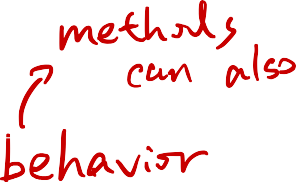 methods
can also
behavior